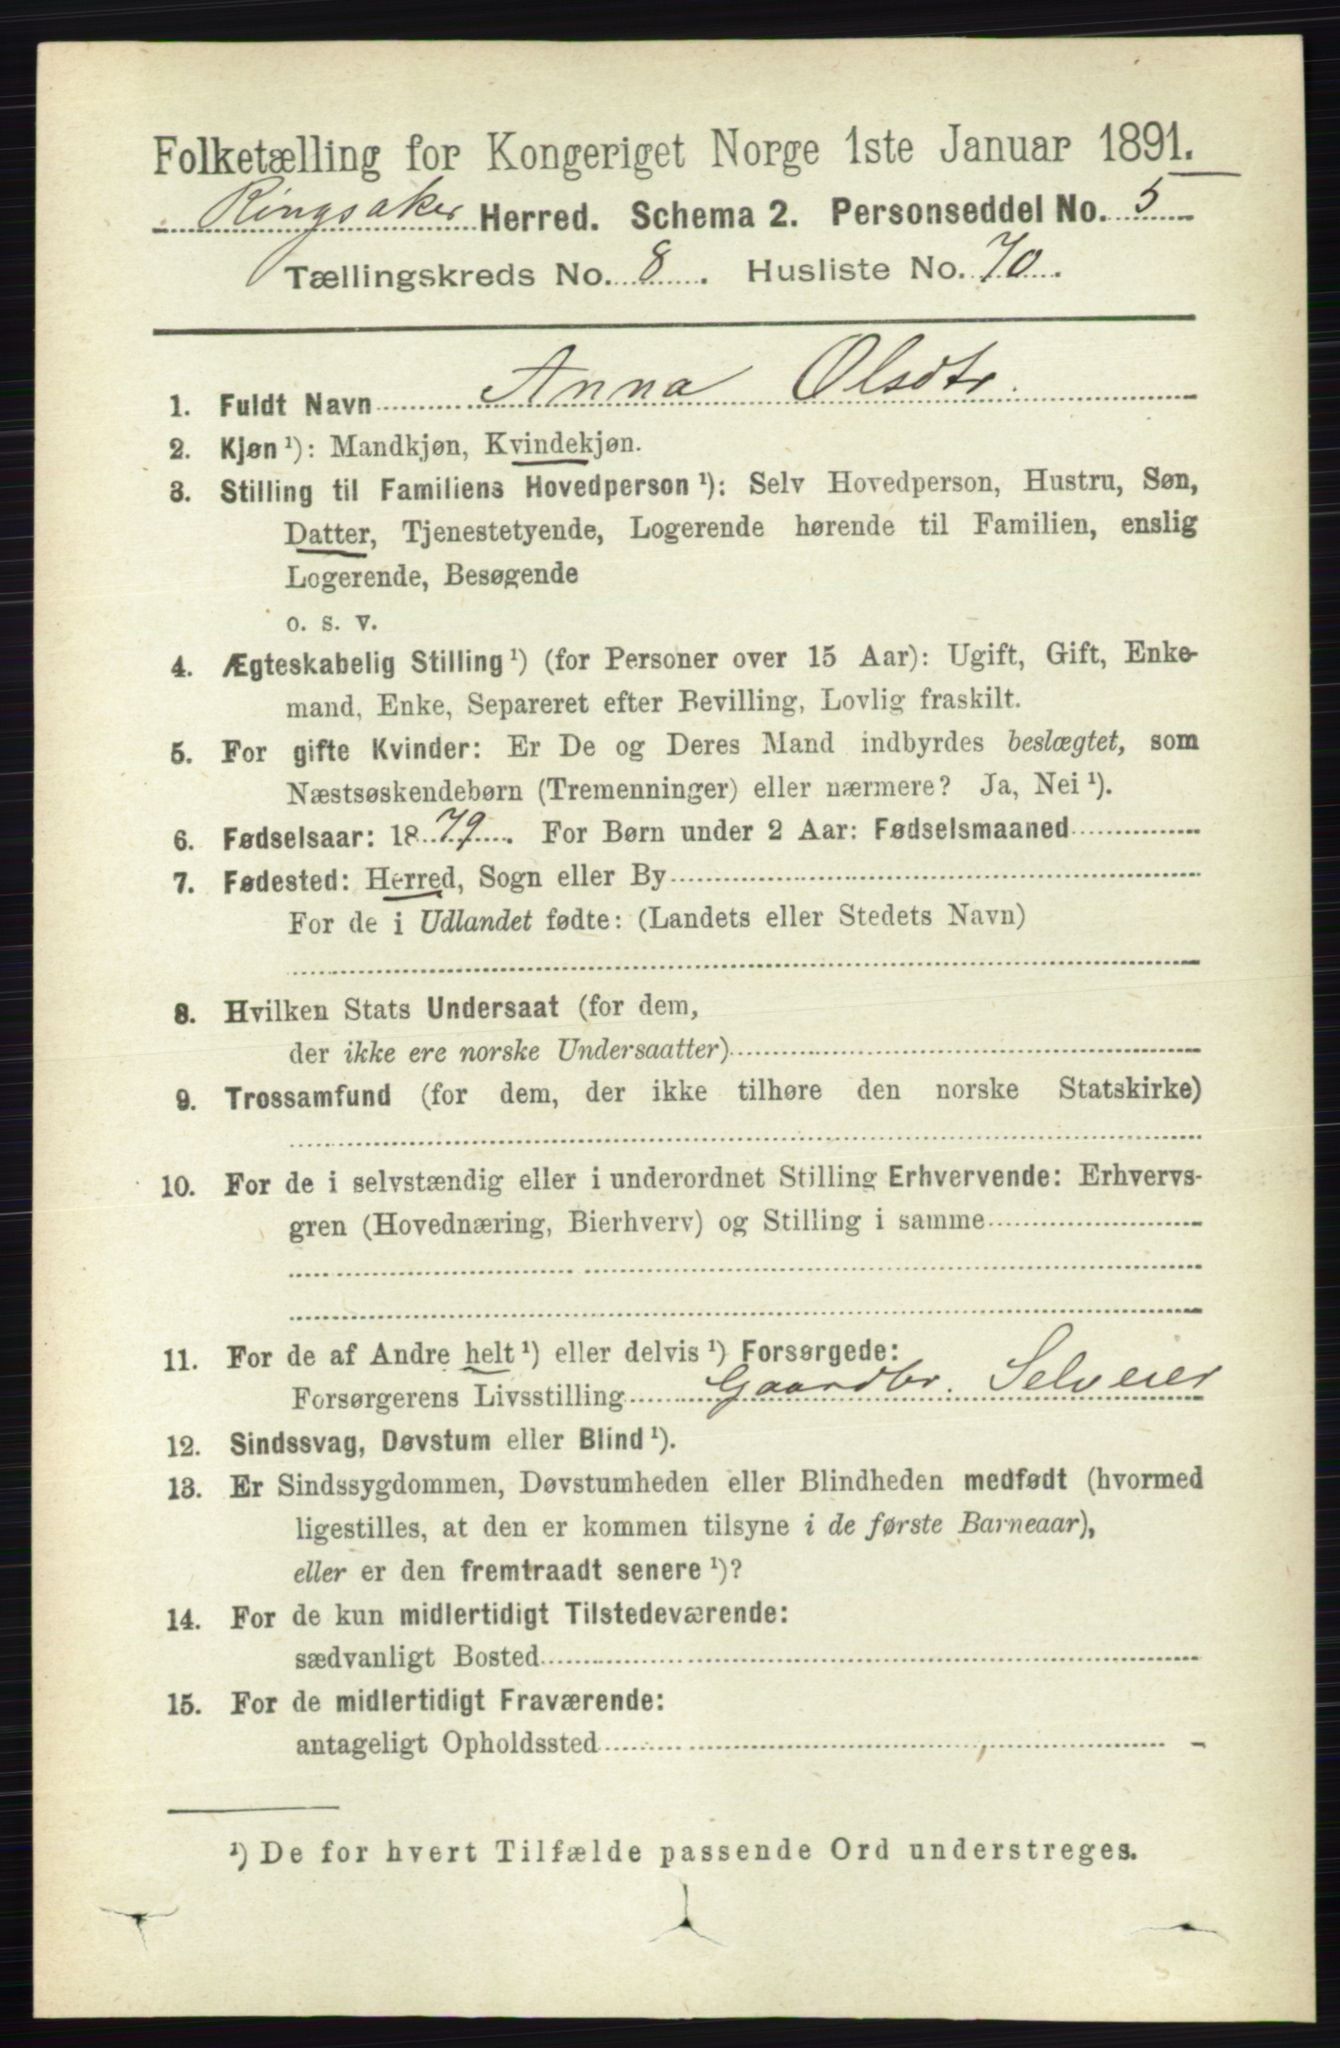 Folketælling for Kongeriget Norge 1ste Januar 1891.
Ringsaker Herred. Schema 2. Personseddel No. 5
Tællingskreds No. 8. Husliste No. 70.
1. Fuldt Navn Anna Olsdtr.
2. Kjøn ¹): Mandkjøn, Kvindekjøn.
3. Stilling til Familiens Hovedperson ¹): Selv Hovedperson, Hustru, Søn,
Datter, Tjenestetyende, Logerende hørende til Familien, enslig
Logerende, Besøgende
o. s. v.
4. Ægteskabelig Stilling ¹) (for Personer over 15 Aar): Ugift, Gift, Enke-
mand, Enke, Separeret efter Bevilling, Lovlig fraskilt.
5. For gifte Kvinder: Er De og Deres Mand indbyrdes beslægtet, som
Næstsøskendebørn (Tremenninger) eller nærmere? Ja, Nei ¹).
6. Fødselsaar: 1879. For Børn under 2 Aar: Fødselsmaaned
7. Fødested: Herred, Sogn eller By
For de i Udlandet fødte: (Landets eller Stedets Navn)
8. Hvilken Stats Undersaat (for dem,
der ikke ere norske Undersaatter)
9. Trossamfund (for dem, der ikke tilhøre den norske Statskirke)
10. For de i selvstændig eller i underordnet Stilling Erhvervende: Erhvervs-
gren (Hovednæring, Bierhverv) og Stilling i samme
11. For de af Andre helt ¹) eller delvis ¹) Forsørgede:
Forsørgerens Livsstilling Gaardbr. Selveier
12. Sindssvag, Døvstum eller Blind ¹).
13. Er Sindssygdommen, Døvstumheden eller Blindheden medfødt (hvormed
ligestilles, at den er kommen tilsyne i de første Barneaar),
eller er den fremtraadt senere ¹)?
14. For de kun midlertidigt Tilstedeværende:
sædvanligt Bosted
15. For de midlertidigt Fraværende:
antageligt Opholdssted
¹) De for hvert Tilfælde passende Ord understreges.